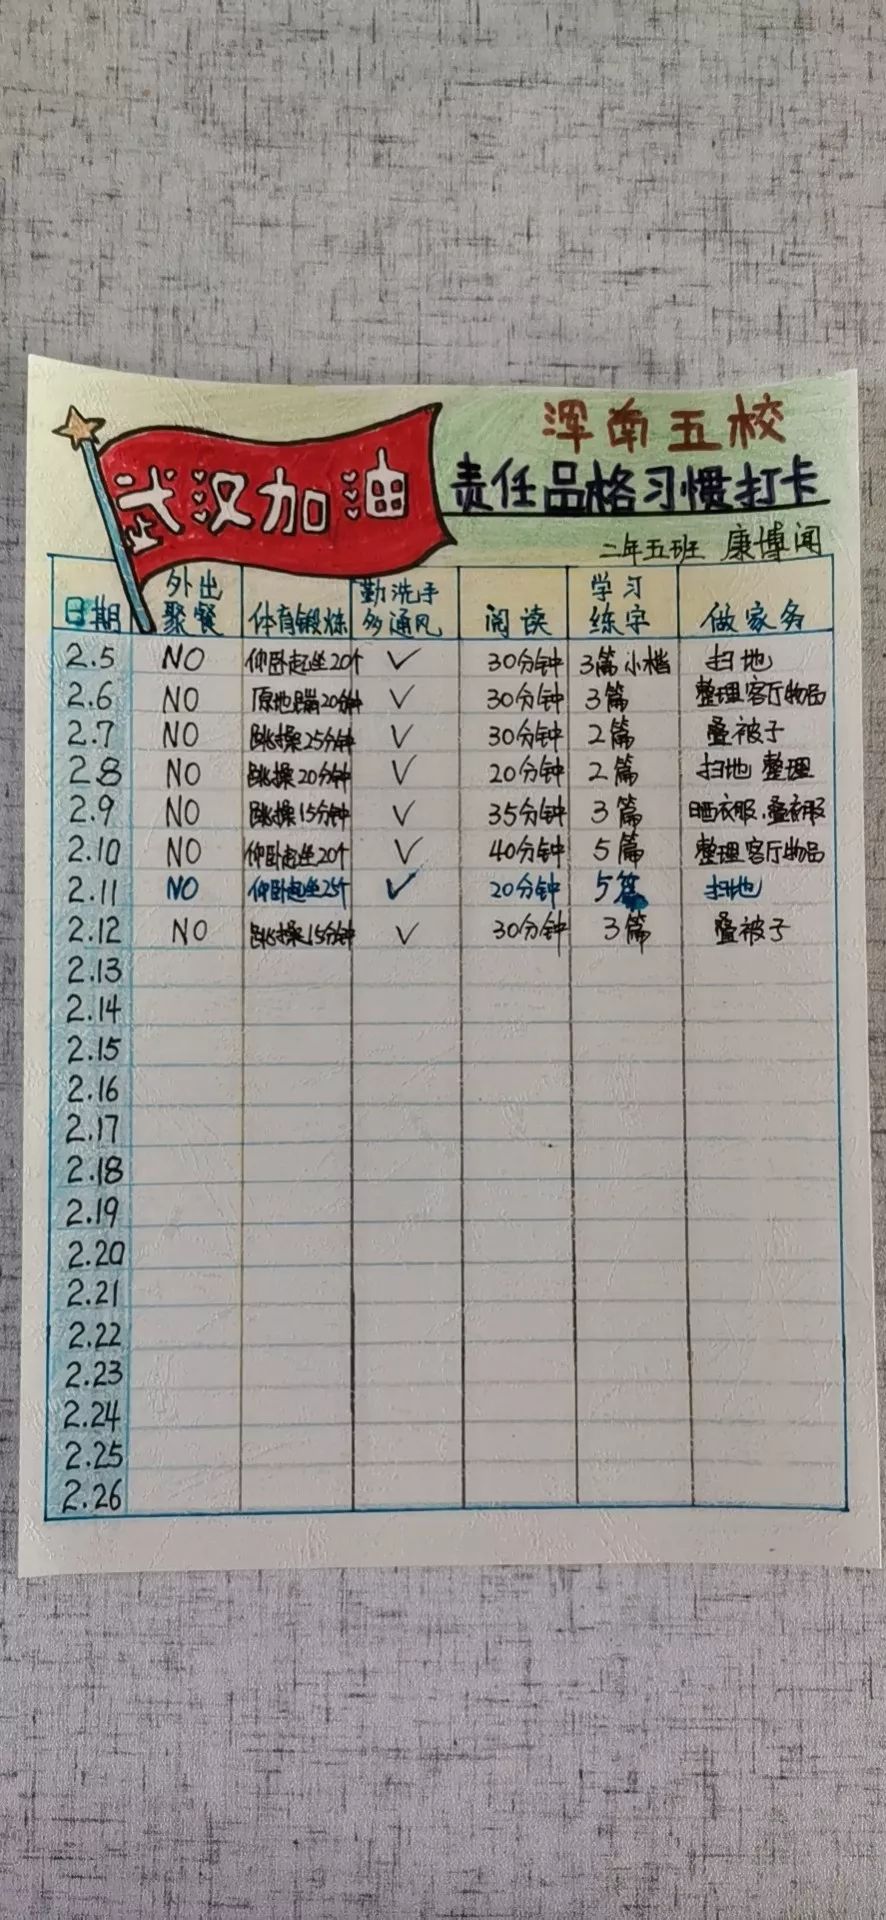 武汉加油
浑南五校
责任品格习惯打卡
二年五班 康博闻
日期 外出聚餐 体育锻炼 勤洗手多通风 阅读 学习练字 做家务
2.5 NO 仰卧起坐20个 ✓ 30分钟 3篇小楷 扫地
2.6 NO 原地蹦20分钟 ✓ 30分钟 3篇 整理客厅物品
2.7 NO 跳操25分钟 ✓ 30分钟 2篇 叠被子
2.8 NO 跳操20分钟 ✓ 20分钟 2篇 扫地 整理
2.9 NO 跳操15分钟 ✓ 35分钟 3篇 晒衣服.叠衣服
2.10 NO 仰卧起坐20个 ✓ 40分钟 5篇 整理客厅物品
2.11 NO 仰卧起坐25个 ✓ 20分钟 5篇 扫地
2.12 NO 跳操15分钟 ✓ 30分钟 3篇 叠被子
2.13
2.14
2.15
2.16
2.17
2.18
2.19
2.20
2.21
2.22
2.23
2.24
2.25
2.26